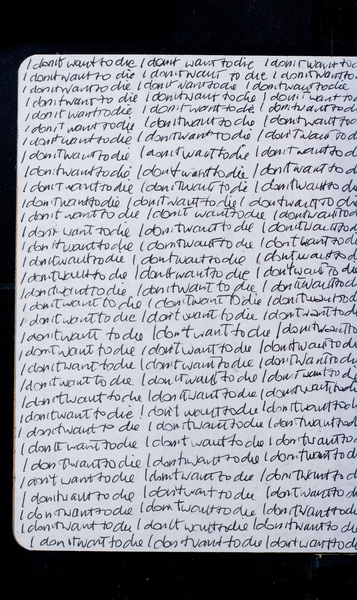 I don't want to die I don't want to die I don't want to
I don't want to die I don't want to die I don't want to
I don't want to die I don't want to die I don't want to die
I don't want to die I don't want to die I don't want to
I don't want to die I don't want to die I don't want to
I don't want to die I don't want to die I don't want to
I don't want to die I don't want to die I don't want to
I don't want to die I don't want to die I don't want to
I don't want to die I don't want to die I don't want to
I don't want to die I don't want to die I don't want to
I don't want to die I don't want to die I don't want to die
I don't want to die I don't want to die I don't want to
I don't want to die I don't want to die I don't want to
I don't want to die I don't want to die I don't want to
I don't want to die I don't want to die I don't want to
I don't want to die I don't want to die I don't want to
I don't want to die I don't want to die I don't want to
I don't want to die I don't want to die I don't want to
I don't want to die I don't want to die I don't want to
I don't want to die I don't want to die I don't want to
I don't want to die I don't want to die I don't want to
I don't want to die I don't want to die I don't want to
I don't want to die I don't want to die I don't want to
I don't want to die I don't want to die I don't want to
I don't want to die I don't want to die I don't want to
I don't want to die I don't want to die I don't want to
I don't want to die I don't want to die I don't want to
I don't want to die I don't want to die I don't want to
I don't want to die I don't want to die I don't want to
I don't want to die I don't want to die I don't want to
I don't want to die I don't want to die I don't want to
I don't want to die I don't want to die I don't want to die
I don't want to die I don't want to die I don't want to die
I don't want to die I don't want to die I don't want to die